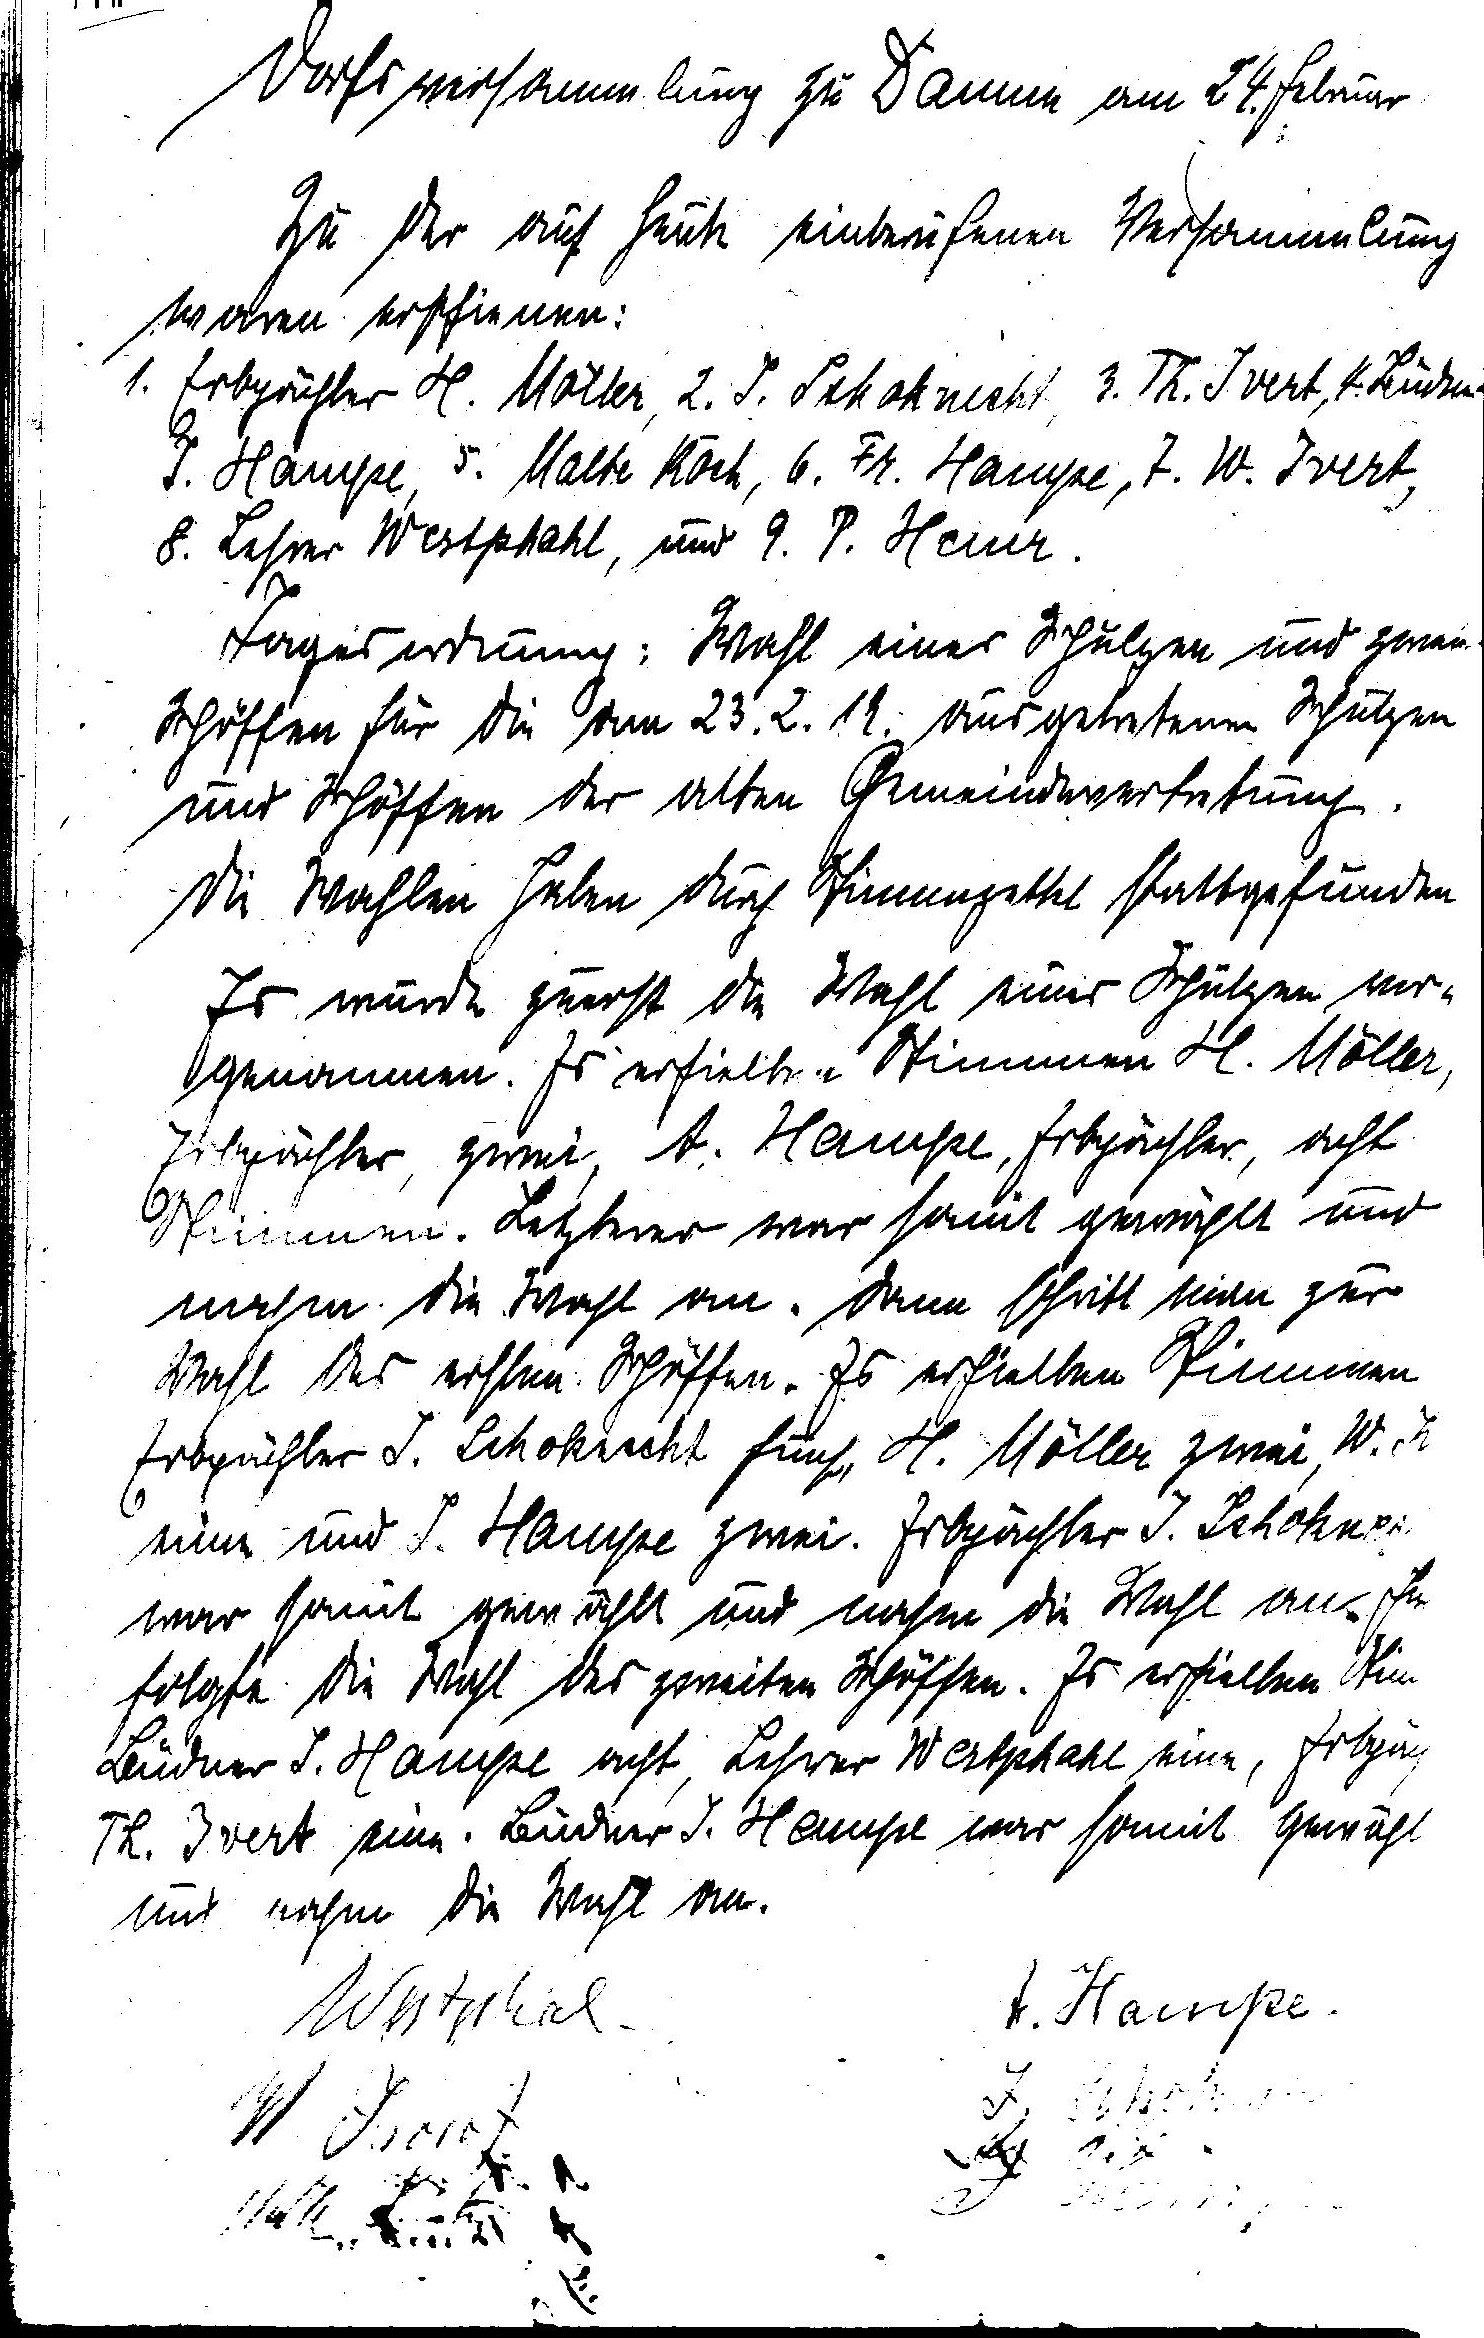 Dorfsversammlung zu Damm am 24. Februar
Zu der auf heute einberufenen Versammlung
waren erschienen:
1. Erbpächter H. Möller, 2. J. Schoknecht, 3. Th. Ivert, 4. Büdner
J. Hampe, 5. Malte Koch, 6. Fr. Hampe, 7. W. Ivert,
8. Lehrer Westphahl, und 9. P.
Tagesordnung: Wahl eines Schulzen und zwei
Schöffen für die am 23.2.19. ausgetretenen Schulzen
und Schöffen der alten Gemeindevertretung.
Die Wahlen haben durch Stimmzettel stattgefunden
Es wurde zuerst die Wahl eines Schulzen vor-
genommen. Es erhielten Stimmen H. Möller,
Erbpächter, zwei, A. Hampe, Erbpächter, acht
Stimmen. Letzterer war somit gewählt und
nahm die Wahl an. Dann schritt man zur
Wahl des ersten Schöffen. Es erhielten Stimmen
Erbpächter J. Schoknecht fünf, H. Möller zwei, W. I
eine und J. Hampe zwei. Erbpächter J. Schokne
war somit gewählt und nahm die Wahl an.
folgte die Wahl des zweiten Schöffen. Es erhielten Stim
Büdner J. Hampe acht, Lehrer Westphahl eine, Erbpäch
Th. Ivert eine. Büdner J. Hampe war somit gewähl
und nahm die Wahl an.
Westphal
A. Hampe.
W Ivert
J.